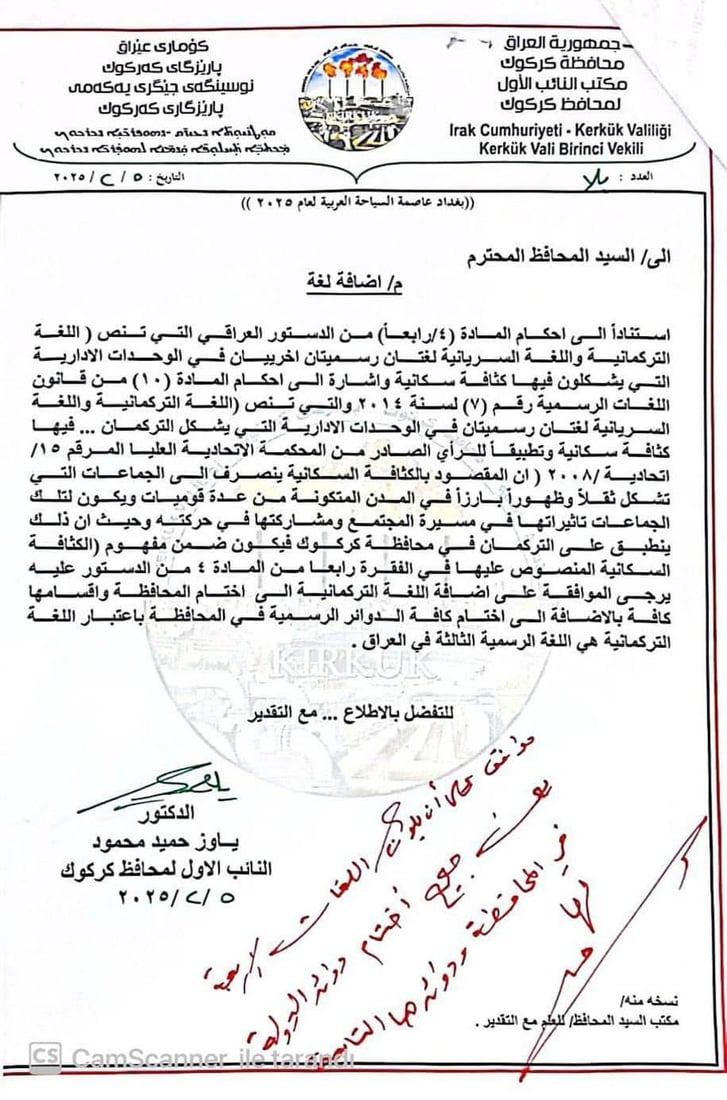 كۆماری عێراق
پارێزگای كەركوك
نوسینگەی جێگری یەكەمی
پارێزگاری كەركوك
جمهورية العراق
محافظة كركوك
مكتب النائب الأول
لمحافظ كركوك
Irak Cumhuriyeti - Kerkük Valiliği
Kerkük Vali Birinci Vekili
العدد : بلا
التاريخ : ٢٠٢٥/٢/٥
((بغداد عاصمة السياحة العربية لعام ٢٠٢٥ ))
الى/ السيد المحافظ المحترم
م/ اضافة لغة
استناداً الى احكام المادة (٤/رابعاً) من الدستور العراقي التي تنص ( اللغة
التركمانية واللغة السريانية لغتان رسميتان اخرييان في الوحدات الادارية
التي يشكلون فيها كثافة سكانية واشارة الى احكام المادة (١٠) من قانون
اللغات الرسمية رقم (٧) لسنة ٢٠١٤ والتي تنص (اللغة التركمانية واللغة
السريانية لغتان رسميتان في الوحدات الادارية التي يشكل التركمان ... فيها
كثافة سكانية وتطبيقاً للرأي الصادر من المحكمة الاتحادية العليا المرقم ١٥/
اتحادية /٢٠٠٨ ( ان المقصود بالكثافة السكانية ينصرف الى الجماعات التي
تشكل ثقلاً وظهوراً بارزاً في المدن المتكونة من عدة قوميات ويكون لتلك
الجماعات تاثيراتها في مسيرة المجتمع ومشاركتها في حركته وحيث ان ذلك
ينطبق على التركمان في محافظة كركوك فيكون ضمن مفهوم (الكثافة
السكانية المنصوص عليها في الفقرة رابعا من المادة ٤ من الدستور عليه
يرجى الموافقة على اضافة اللغة التركمانية الى اختام المحافظة واقسامها
كافة بالاضافة الى اختام كافة الدوائر الرسمية في المحافظة باعتبار اللغة
التركمانية هي اللغة الرسمية الثالثة في العراق .
KIRKUK
للتفضل بالاطلاع ... مع التقدير
الدكتور
ياوز حميد محمود
النائب الاول لمحافظ كركوك
٢٠٢٥/٢/٥
موافق على أن يكون اللغات الاربعة
جميع أختام دوائر الدولة
في المحافظة ودوائرها التابعة
لها
نسخه منه/
مكتب السيد المحافظ/ للعلم مع التقدير .
CS CamScanner ile tarandı